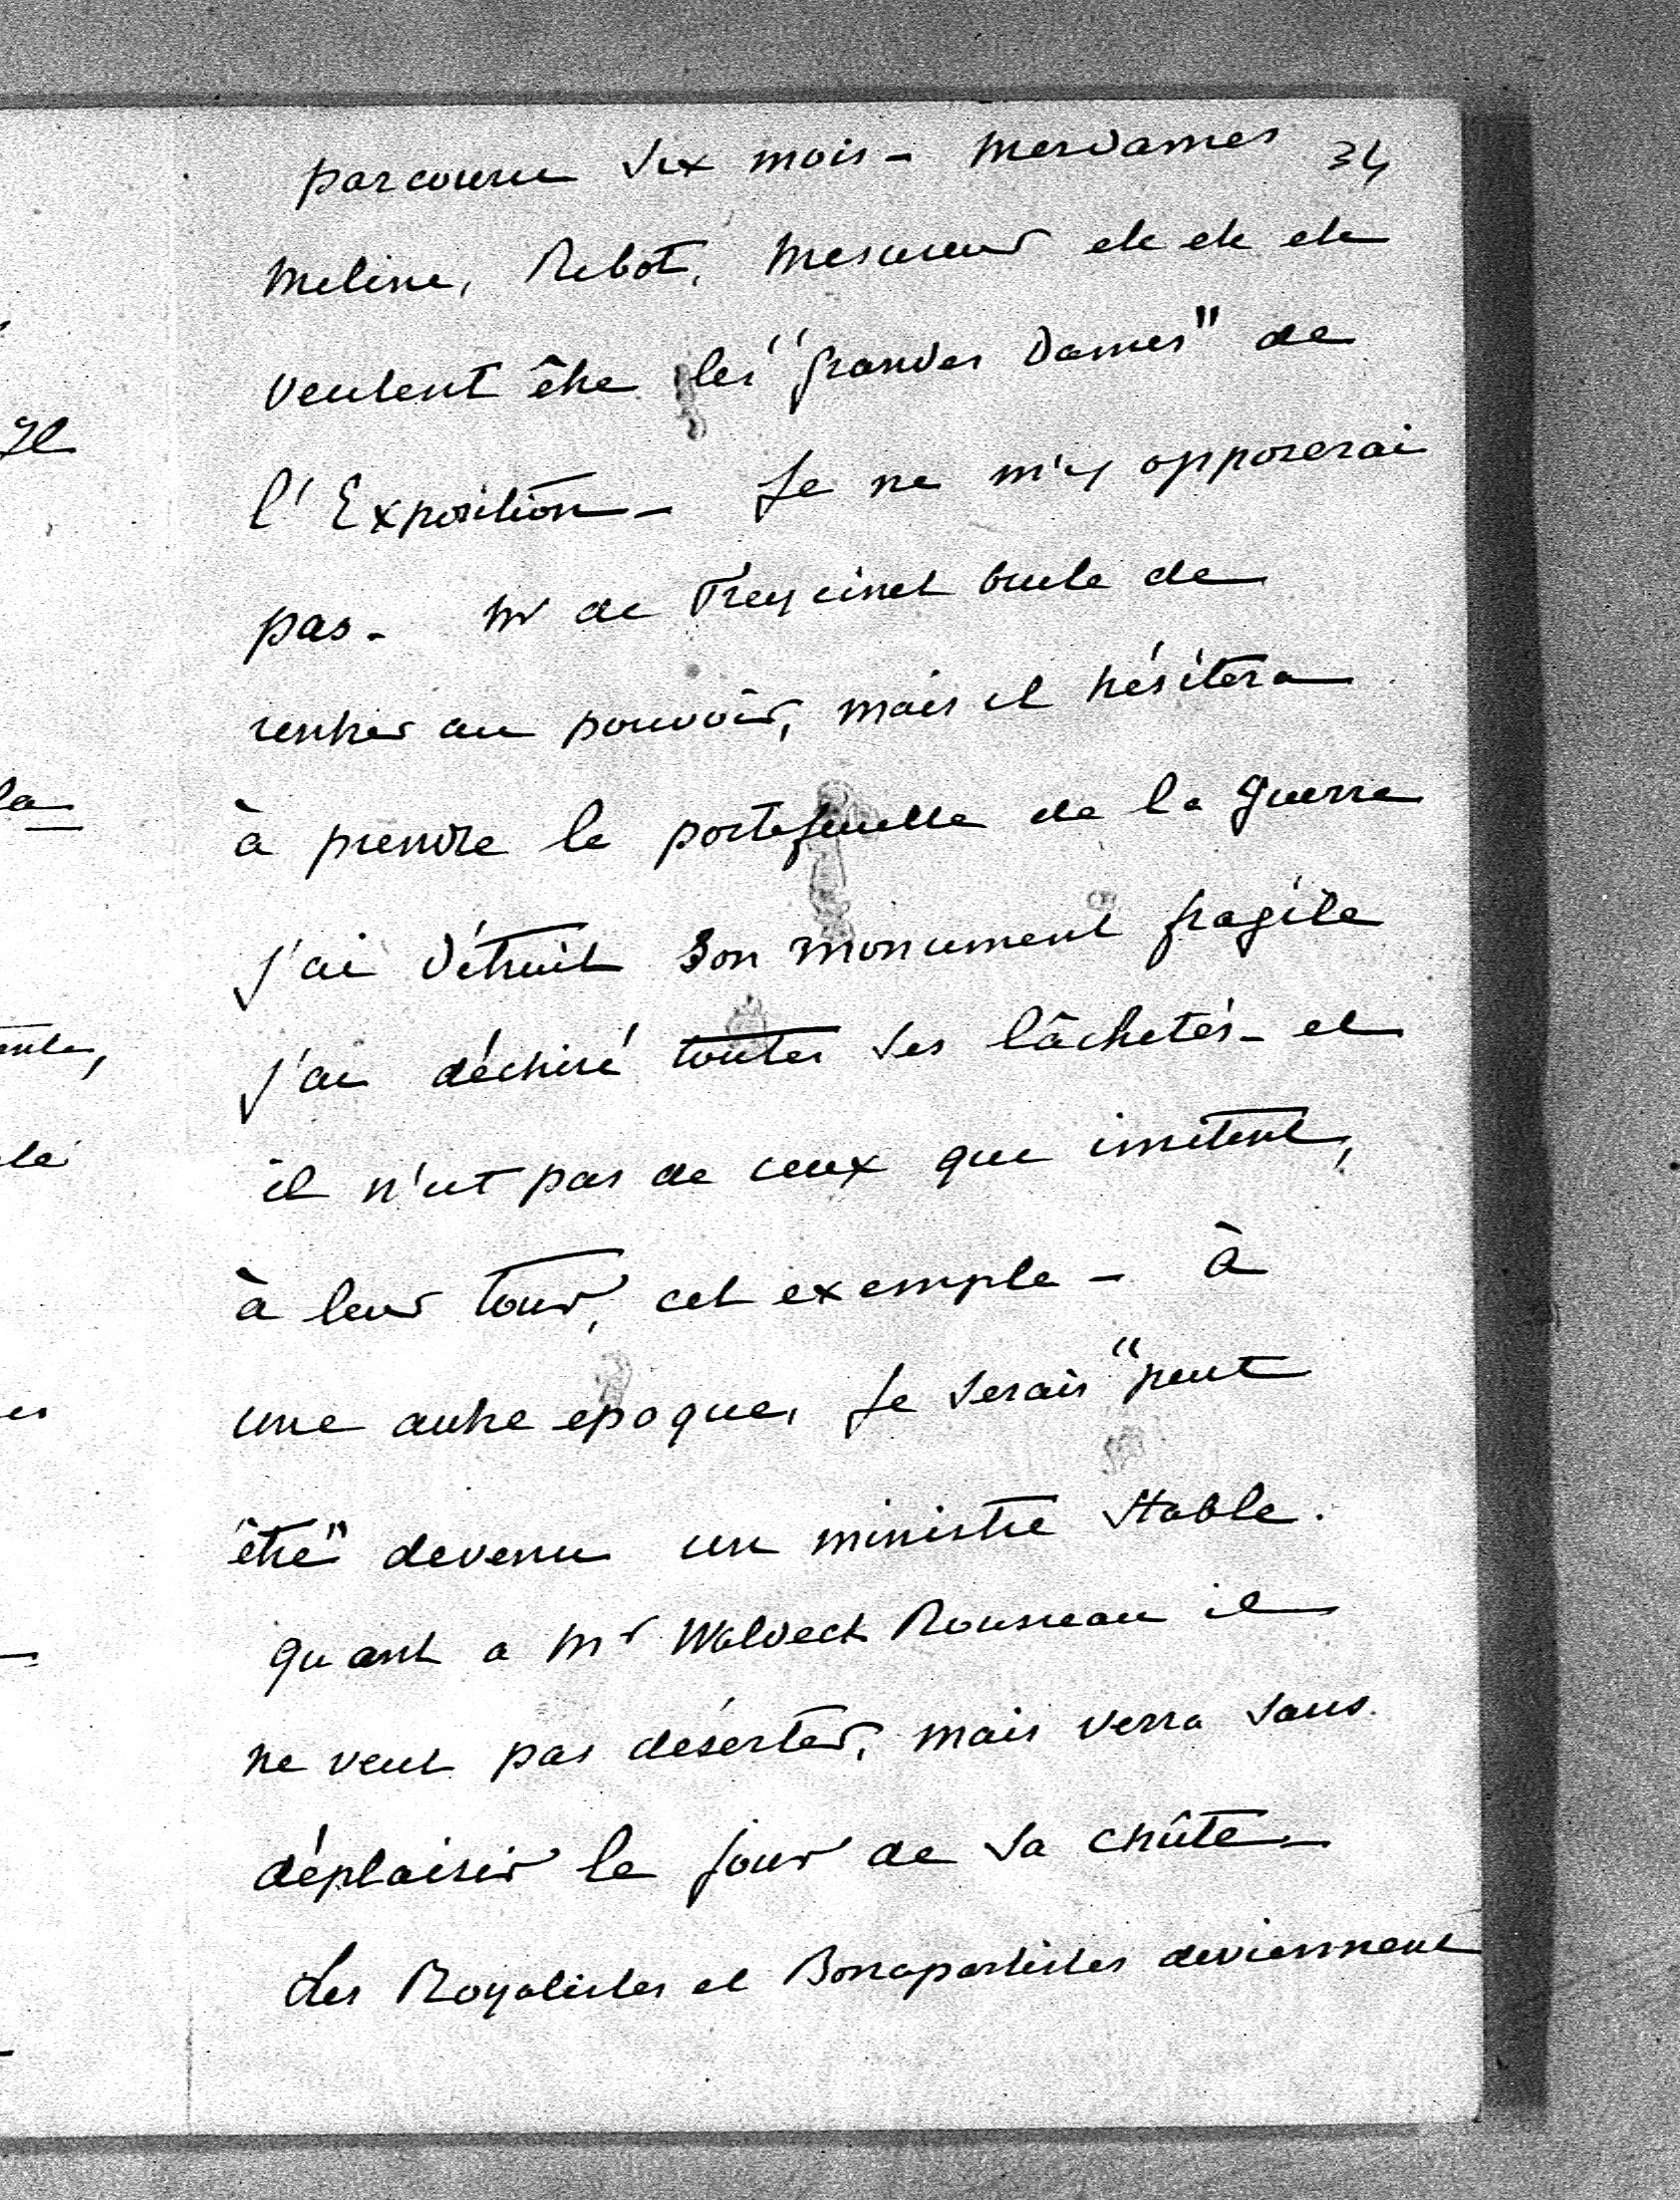 parcouru six mois - mesdames 34
Meline, Ribot, Mesureur etc etc etc
veulent être les "grandes Dames" de
l'Exposition - Je ne m'y opposerai
pas - Mr de Freycinet brule de
rentrer au pouvoir, mais il hésitera
à prendre le portefeuille de la Guerre
j'ai détruit son monument fragile
j'ai déchiré toutes ses lâchetés - et
il n'est pas de ceux qui imitent,
à leur tour, cet exemple - à
une autre epoque, Je serais "peut
être" devenu un ministre stable.
quant a Mr Waldeck Rousseau il
ne veut pas déserter, mais verra sans
déplaisir le jour de sa chûte -
Les Royalistes et Bonapartistes deviennent